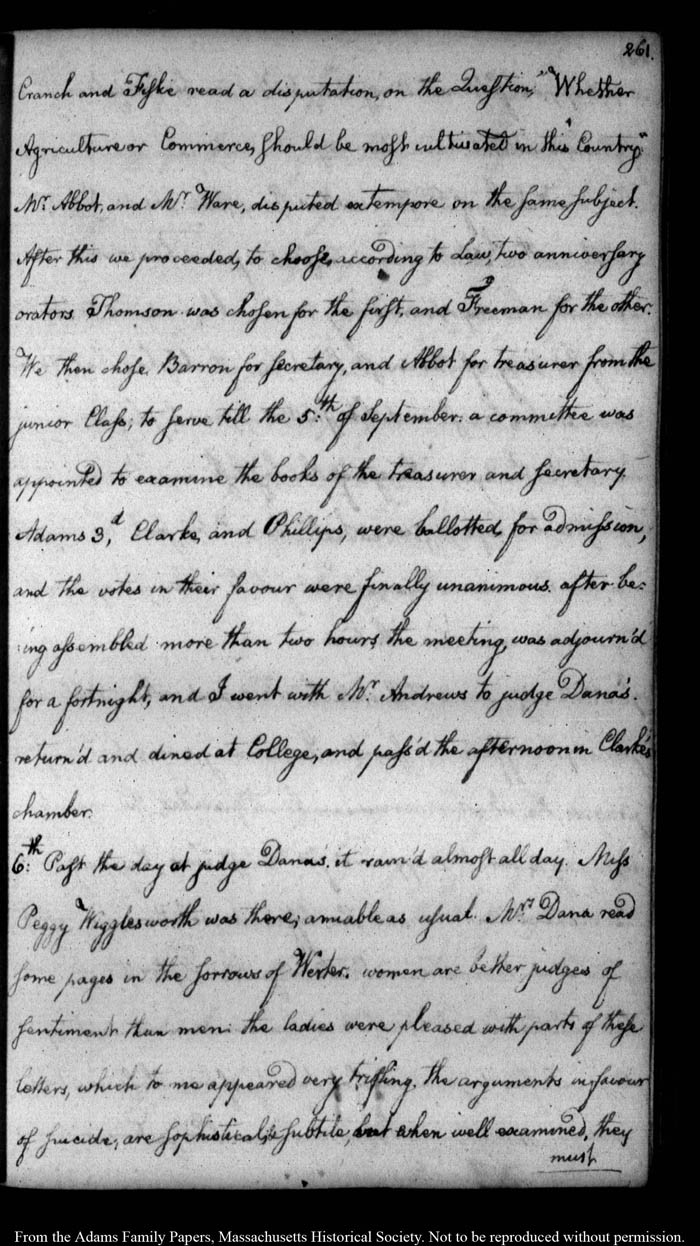 261.
Cranch and Fiske read a disputation, on the Question, "Whether
Agriculture or Commerce, should be most cultivated in this Country."
Mr. Abbot, and Mr. Ware, disputed extempore on the same subject.
After this we proceeded, to choose, according to Law, two anniversary
orators. Thomson was chosen for the first, and Freeman for the other.
We then chose Barron for secretary, and Abbot for treasurer from the
junior Class; to serve till the 5:th of September. a committee was
appointed to examine the books of the treasurer and secretary.
Adams 3,d Clarke, and Phillips, were ballotted, for admission,
and the votes in their favour were finally unanimous. after be:
:ing assembled more than two hours, the meeting, was adjourn'd
for a fortnight, and I went with Mr. Andrews to judge Dana's.
return'd and dined at College, and pass'd the afternoon in Clarke's
chamber.
6:th Past the day at judge Dana's. it rain'd almost all day. Miss
Peggy Wigglesworth was there, amiable as usual. Mrs. Dana read
some pages in the sorrows of Werter. women are better judges of
sentiment than men: the ladies were pleased with parts of these
letters, which to me appeared very trifling. the arguments in favour
of suicide, are subtile, but when well examined, they
must
From the Adams Family Papers, Massachusetts Historical Society. Not to be reproduced without permission.